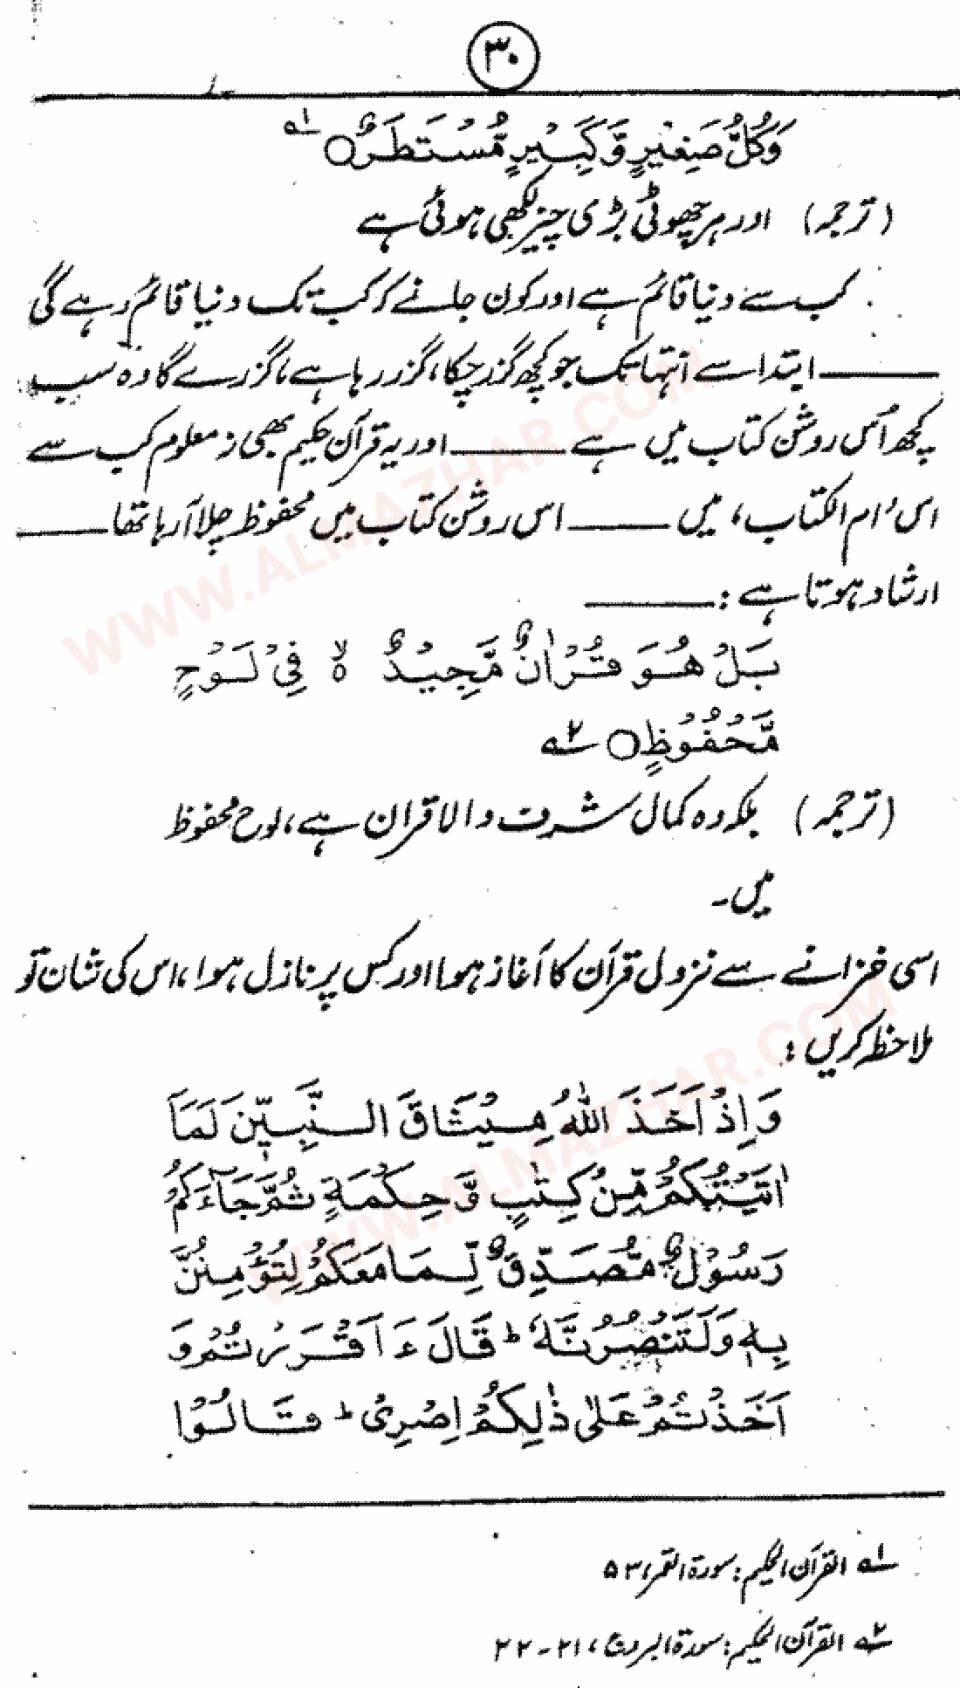 ۳۰
وَكُلُّ صَغِيْرٍ وَّكَبِيْرٍ مُّسْتَطَرٌ ○ ؎۱
(ترجمہ) اور ہر چھوٹی بڑی چیز لکھی ہوئی ہے
کب سے دنیا قائم ہے اور کون جانے کہ کب تک دنیا قائم رہے گی
——— ابتدا سے انتہا تک جو کچھ گزر چکا، گزر رہا ہے، گزرے گا وہ سب
کچھ اُس روشن کتاب میں ہے ——— اور یہ قرآن حکیم بھی نہ معلوم کب سے
اس 'ام الکتاب' میں ——— اس روشن کتاب میں محفوظ چلا آ رہا تھا ———
ارشاد ہوتا ہے: ———
بَلْ هُوَ قُرْاٰنٌ مَّجِيْدٌ ۙ فِيْ لَوْحٍ
مَّحْفُوْظٍ ○ ؎۲
(ترجمہ) بلکہ وہ کمال شرف والا قرآن ہے، لوح محفوظ
میں۔
اسی خزانے سے نزول قرآن کا آغاز ہوا اور کس پر نازل ہوا، اس کی شان تو
ملاحظہ کریں:
وَاِذْ اَخَذَ اللّٰهُ مِيْثَاقَ النَّبِيّٖنَ لَمَآ
اٰتَيْتُكُمْ مِّنْ كِتٰبٍ وَّ حِكْمَةٍ ثُمَّ جَآءَكُمْ
رَسُوْلٌ مُّصَدِّقٌ لِّمَا مَعَكُمْ لِتُؤْمِنُنَّ
بِهٖ وَلَتَنْصُرُنَّهٗ ؕ قَالَ ءَاَقْرَرْتُمْ وَ
اَخَذْتُمْ عَلٰى ذٰلِكُمْ اِصْرِىْ ؕ قَالُوْا
؎۱ القرآن الحکیم: سورۃ القمر، ۵۳
؎۲ القرآن الحکیم: سورۃ البروج، ۲۱-۲۲
WWW.ALMAZHAR.COM
WWW.ALMAZHAR.COM